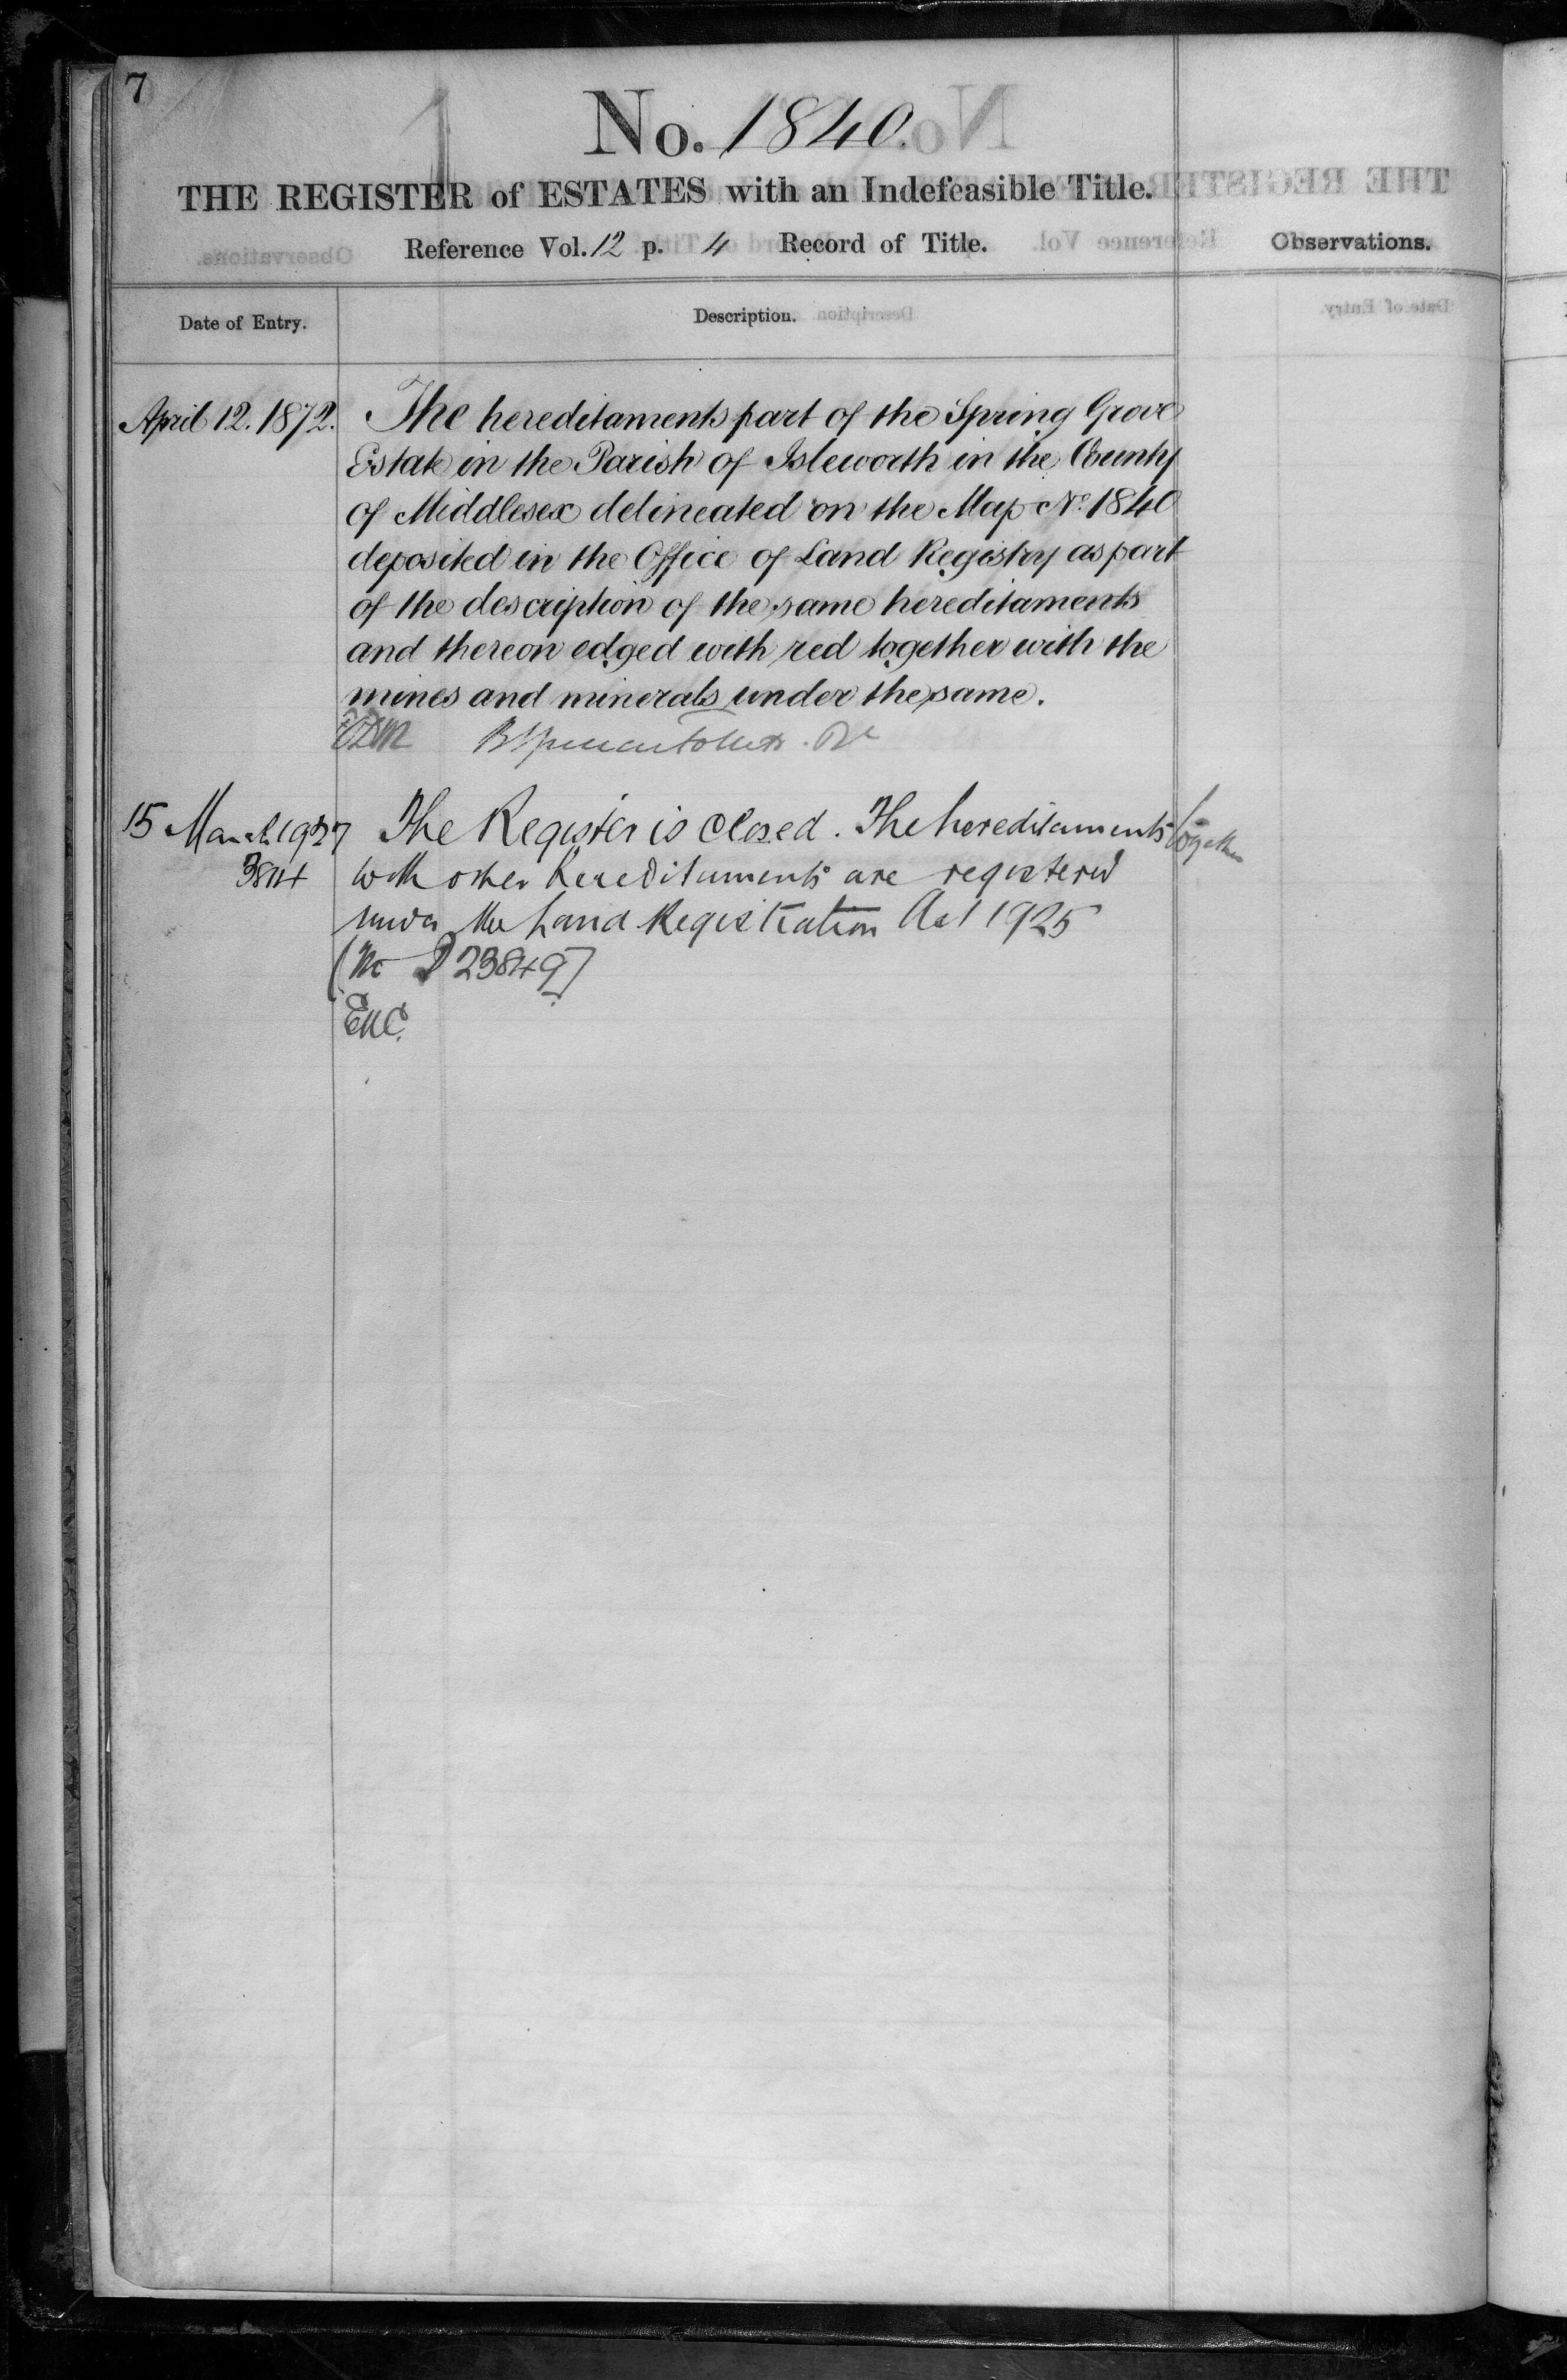 7
No. 1840.
THE REGISTER of ESTATES with an Indefeasible Title.
Reference Vol. 12 p. 4 Record of Title.
Observations.
Date of Entry.
Description.
April 12. 1872. The hereditaments part of the Spring Grove
Estate in the Parish of Isleworth in the County
of Middlesex delineated on the Map No. 1840
deposited in the Office of Land Registry as part
of the description of the same hereditaments
and thereon edged with red together with the
mines and minerals under the same.
15 March 1927 The Register is closed. The hereditaments together
with other hereditaments are registered
under the Land Registration Act 1925
(No P 23849)